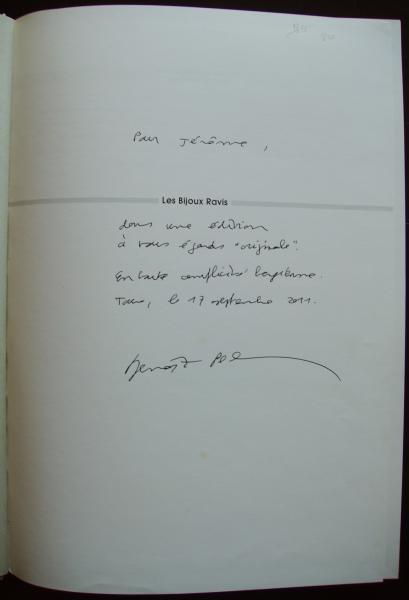 Pour Jérôme,
Les Bijoux Ravis
dans une édition
à tous égards "originale".
En toute complicité bergienne.
Tours, le 17 septembre 2011.
Benoît